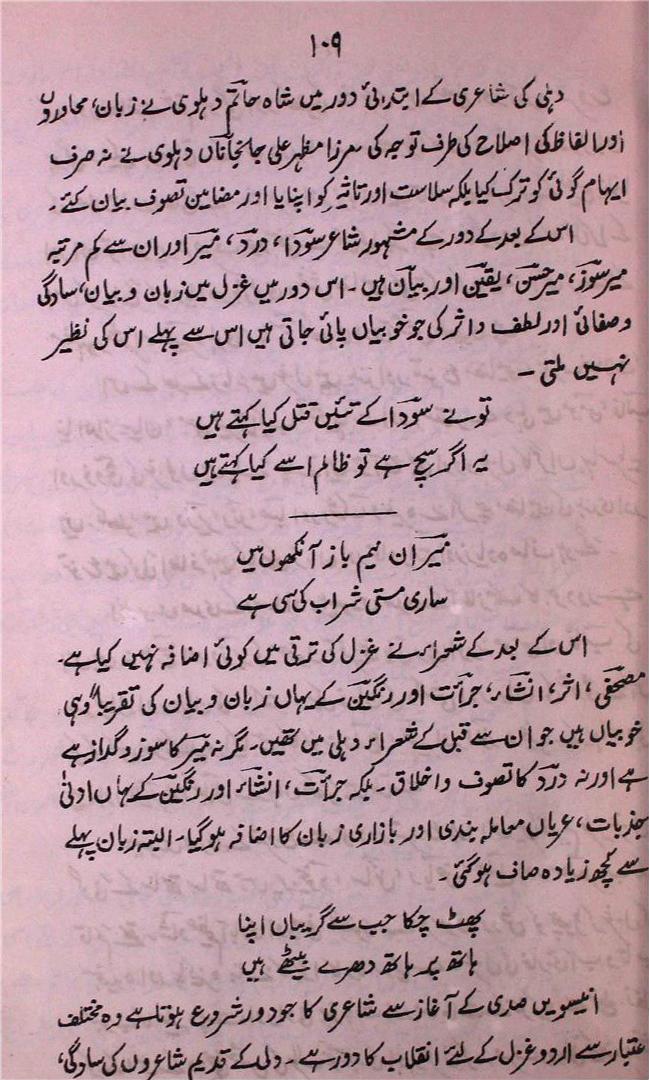 ۱۰۹
دہلی کی شاعری کے ابتدائی دور میں شاہ حاتم دہلوی نے زبان، محاوروں
اور الفاظ کی اصلاح کی طرف توجہ کی مرزا مظہر علی جانجاناں دہلوی نے نہ صرف
ایہام گوئی کو ترک کیا بلکہ سلاست اور تاثیر کو اپنایا اور مضامین تصوف بیان کئے۔
اس کے بعد کے دور کے مشہور شاعر سودا، درد، میر اور ان سے کم مرتبہ
میر سوز، میر حسن، یقین اور بیان ہیں۔ اس دور میں غزل میں زبان و بیان، سادگی
و صفائی اور لطف و اثر کی جو خوبیاں پائی جاتی ہیں اس سے پہلے اس کی نظیر
نہیں ملتی۔
تو نے سودا کے تئیں قتل کیا کہتے ہیں
یہ اگر سچ ہے تو ظالم اسے کیا کہتے ہیں
میر ان نیم باز آنکھوں میں
ساری مستی شراب کی سی ہے
اس کے بعد کے شعراء نے غزل کی ترقی میں کوئی اضافہ نہیں کیا ہے۔
مصحفی، اثر، انشاء، جرأت اور رنگین کے یہاں زبان و بیان کی تقریباً وہی
خوبیاں ہیں جو ان سے قبل کے شعراء دہلی میں تھیں۔ مگر نہ میر کا سوز و گداز ہے
ہے اور نہ درد کا تصوف و اخلاق۔ بلکہ جرأت، انشاء اور رنگین کے یہاں ادنیٰ
جذبات، عریاں معاملہ بندی اور بازاری زبان کا اضافہ ہو گیا۔ البتہ زبان پہلے
سے کچھ زیادہ صاف ہو گئی۔
پھٹ چکا جب سے گریباں اپنا
ہاتھ پر ہاتھ دھرے بیٹھے ہیں
انیسویں صدی کے آغاز سے شاعری کا جو دور شروع ہوتا ہے وہ مختلف
اعتبار سے اردو غزل کے لئے انقلاب کا دور ہے۔ دلی کے قدیم شاعروں کی سادگی،